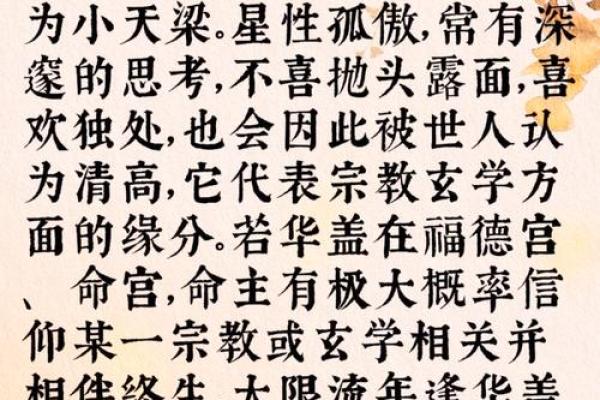 为小天梁。星性孤傲，常有深
邃的思考，不喜抛头露面，喜
欢独处，也会因此被世人认
为清高，它代表宗教玄学方
面的缘分。若华盖在福德宫
、命宫，命主有极大概率信
仰某一宗教或玄学相关并
相伴终生。大限流年逢华盖